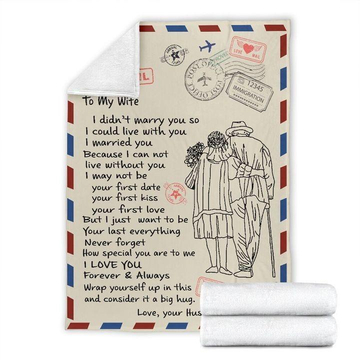 To My Wife
I didn't marry you so
I could live with you
I married you
Because I can not
live without you
I may not be
your first date
your first kiss
your first love
But I just want to be
Your last everything
Never forget
How special you are to me
I LOVE YOU
Forever & Always
Wrap yourself up in this
and consider it a big hug.
Love, your Hus
12345
IMMIGRATION